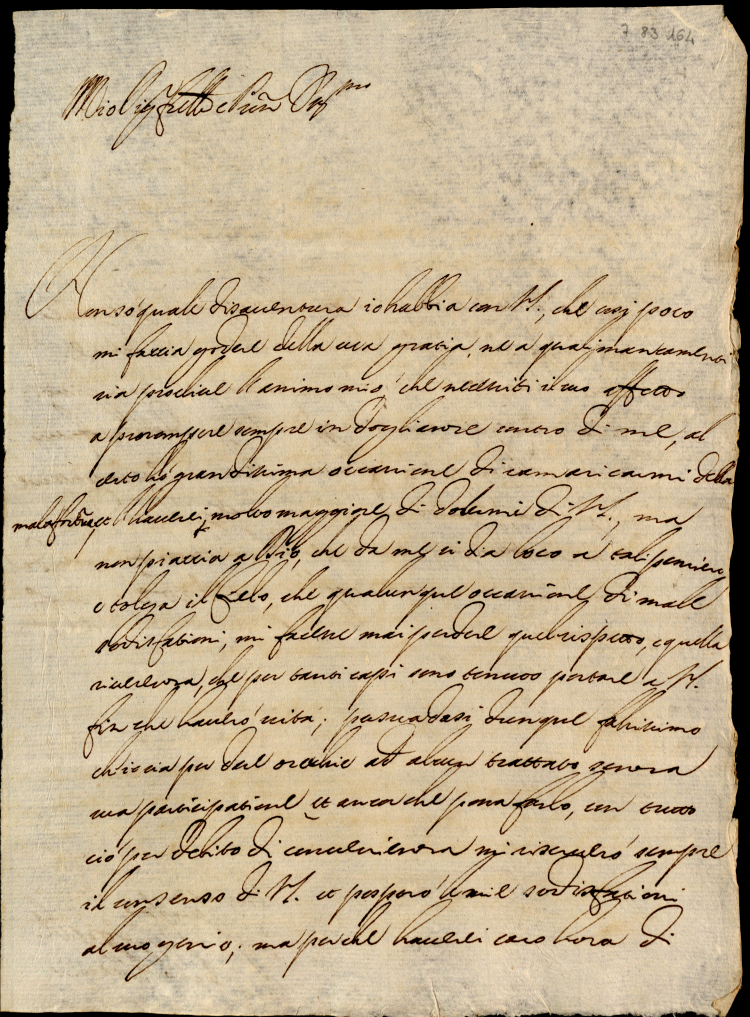 7 83 164
Mio Sig.r fratello e Pron Sig.mo
Non so quale disaventura io habbia con V.S., che cosi poco
mi faccia godere della sua gratia, ne a quali mancamenti
sia proclive l'animo mio che necessiti il suo affetto
a prorompere sempre in doglianze contro di me, al
certo ho grandissima occasione di ramaricarmi della
mala fortuna, et l'haverei molto maggiore di dolermi di V.S., ma
non piaccia a Dio, che da me si dia loco a tali pensieri
e tolga il Cielo, che qualunque occasione di male
sodisfationi, mi facesse mai perdere quel rispetto, e quella
riverenza, che per tanti capi sono tenuto portare a V.S.
fin che haverò vita; persuadasi dunque falsissimo
ch'io sia per dare orecchie ad alcun trattato senza
sua participatione et ancor che possa farlo, con tutto
ciò per debito di convenienza mi riserverò sempre
il consenso di V.S. et posporò le mie sodisfationi
al suo genio; ma perche haverei caro hora di